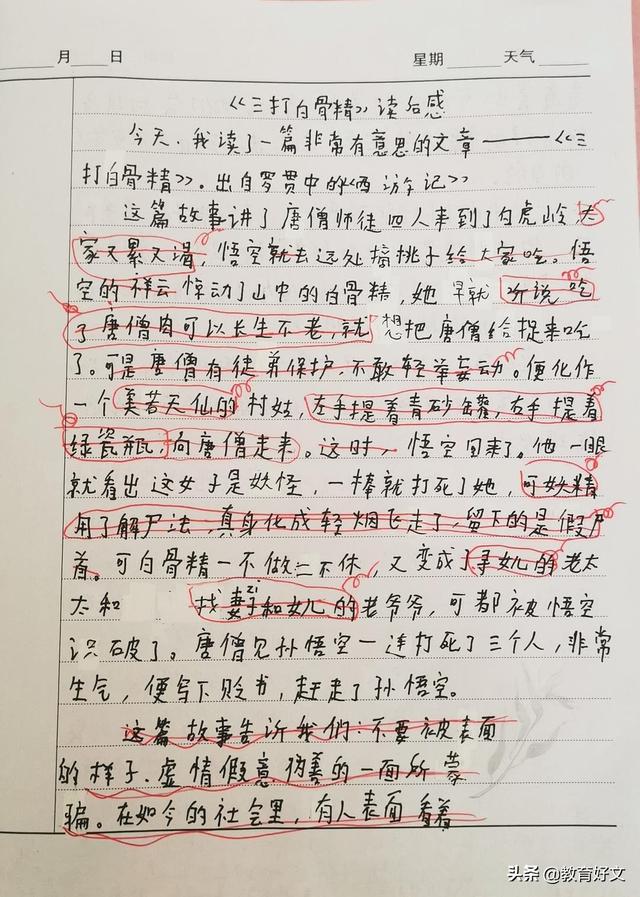 月 日 星期 天气
《三打白骨精》读后感
今天,我读了一篇非常有意思的文章——《三
打白骨精》。出自罗贯中的《西游记》
这篇故事讲了唐僧师徒四人来到了白虎岭,大
家又累又渴,悟空就去远处摘桃子给大家吃。悟
空的祥云惊动了山中的白骨精,她早就听说吃
了唐僧肉可以长生不老,就想把唐僧给捉来吃
了。可是唐僧有徒弟保护,不敢轻举妄动。便化作
一个美若天仙的村姑,左手提着青砂罐,右手提着
绿瓷瓶,向唐僧走来。这时,悟空回来了。他一眼
就看出这女子是妖怪,一棒就打死了她,可妖精
用了解尸法,真身化成轻烟飞走了,留下的是假尸
首。可白骨精一不做二不休,又变成了寻女儿的老太
太和 找妻子和女儿的老爷爷,可都被悟空
识破了。唐僧见孙悟空一连打死了三个人,非常
生气,便写下贬书,赶走了孙悟空。
这篇故事告诉我们:不要被表面
的样子、虚情假意伪善的一面所蒙
骗。在如今的社会里,有人表面看着
头条 @教育好文